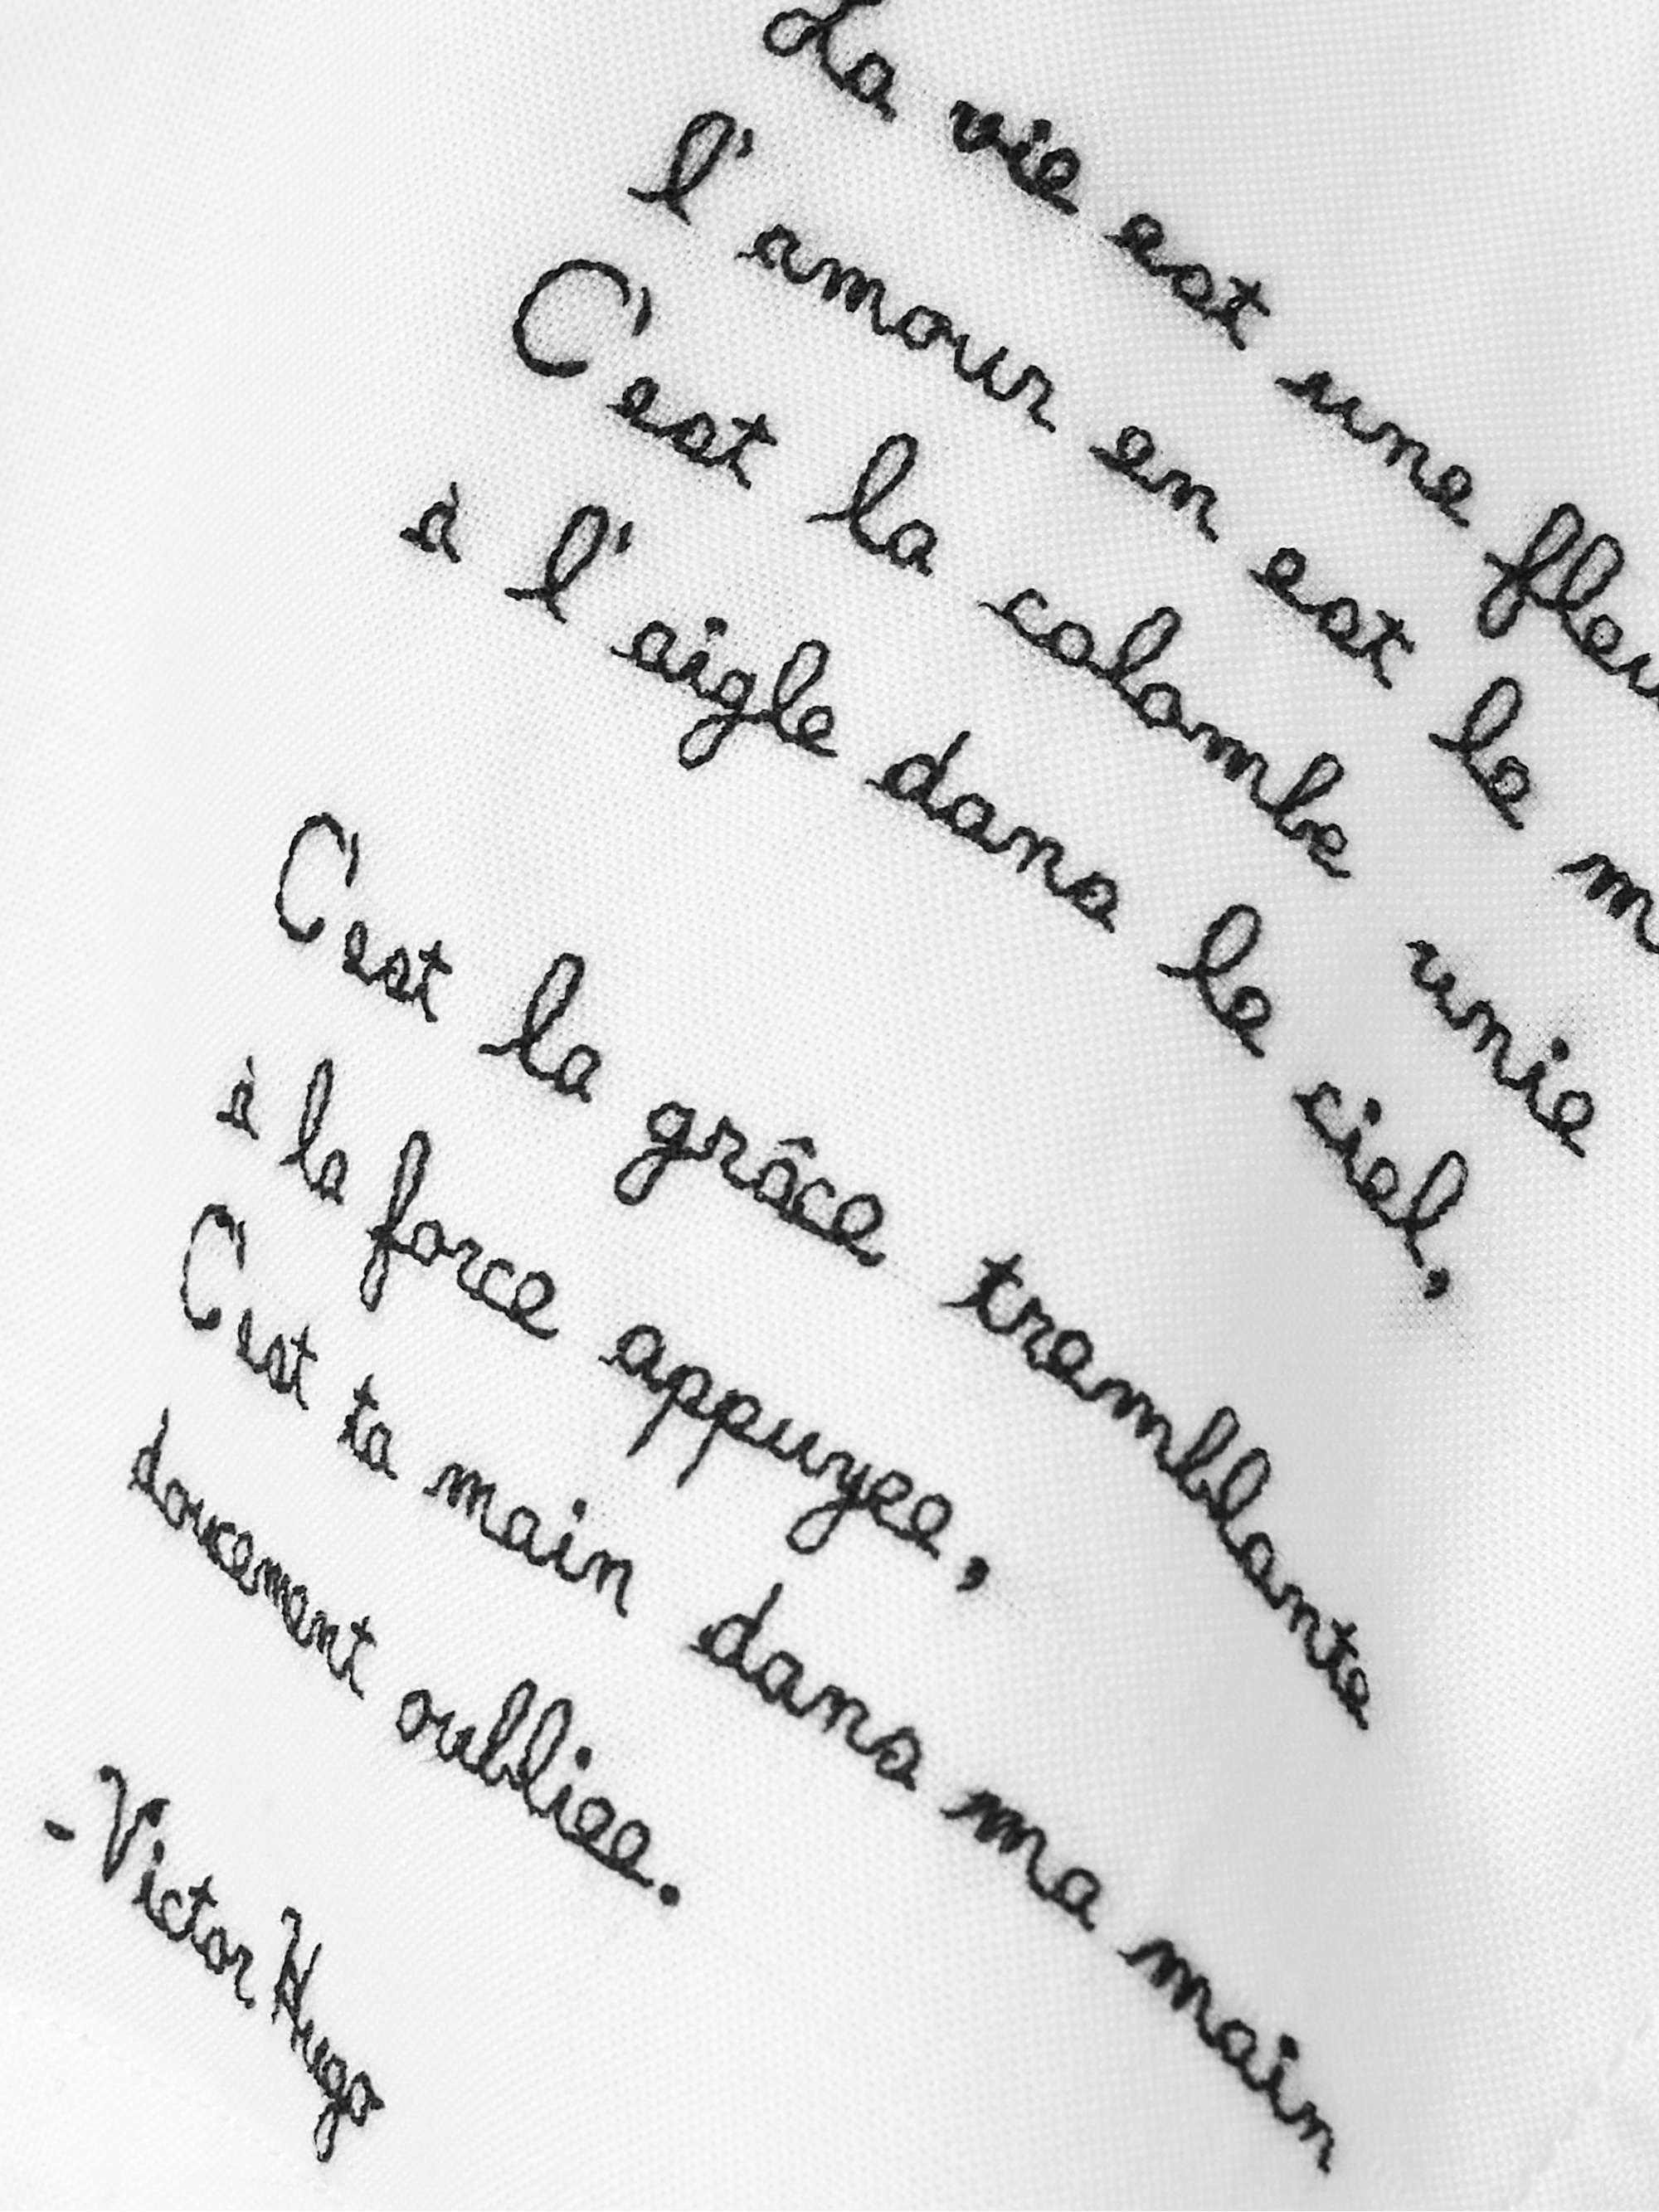 La vie est une fleu
l'amour en est le m
C'est la colombe unie
à l'aigle dans le ciel,
C'est la grâce tremblante
à la force appuyee,
C'est ta main dans ma main
doucement oubliee.
-Victor Hugo